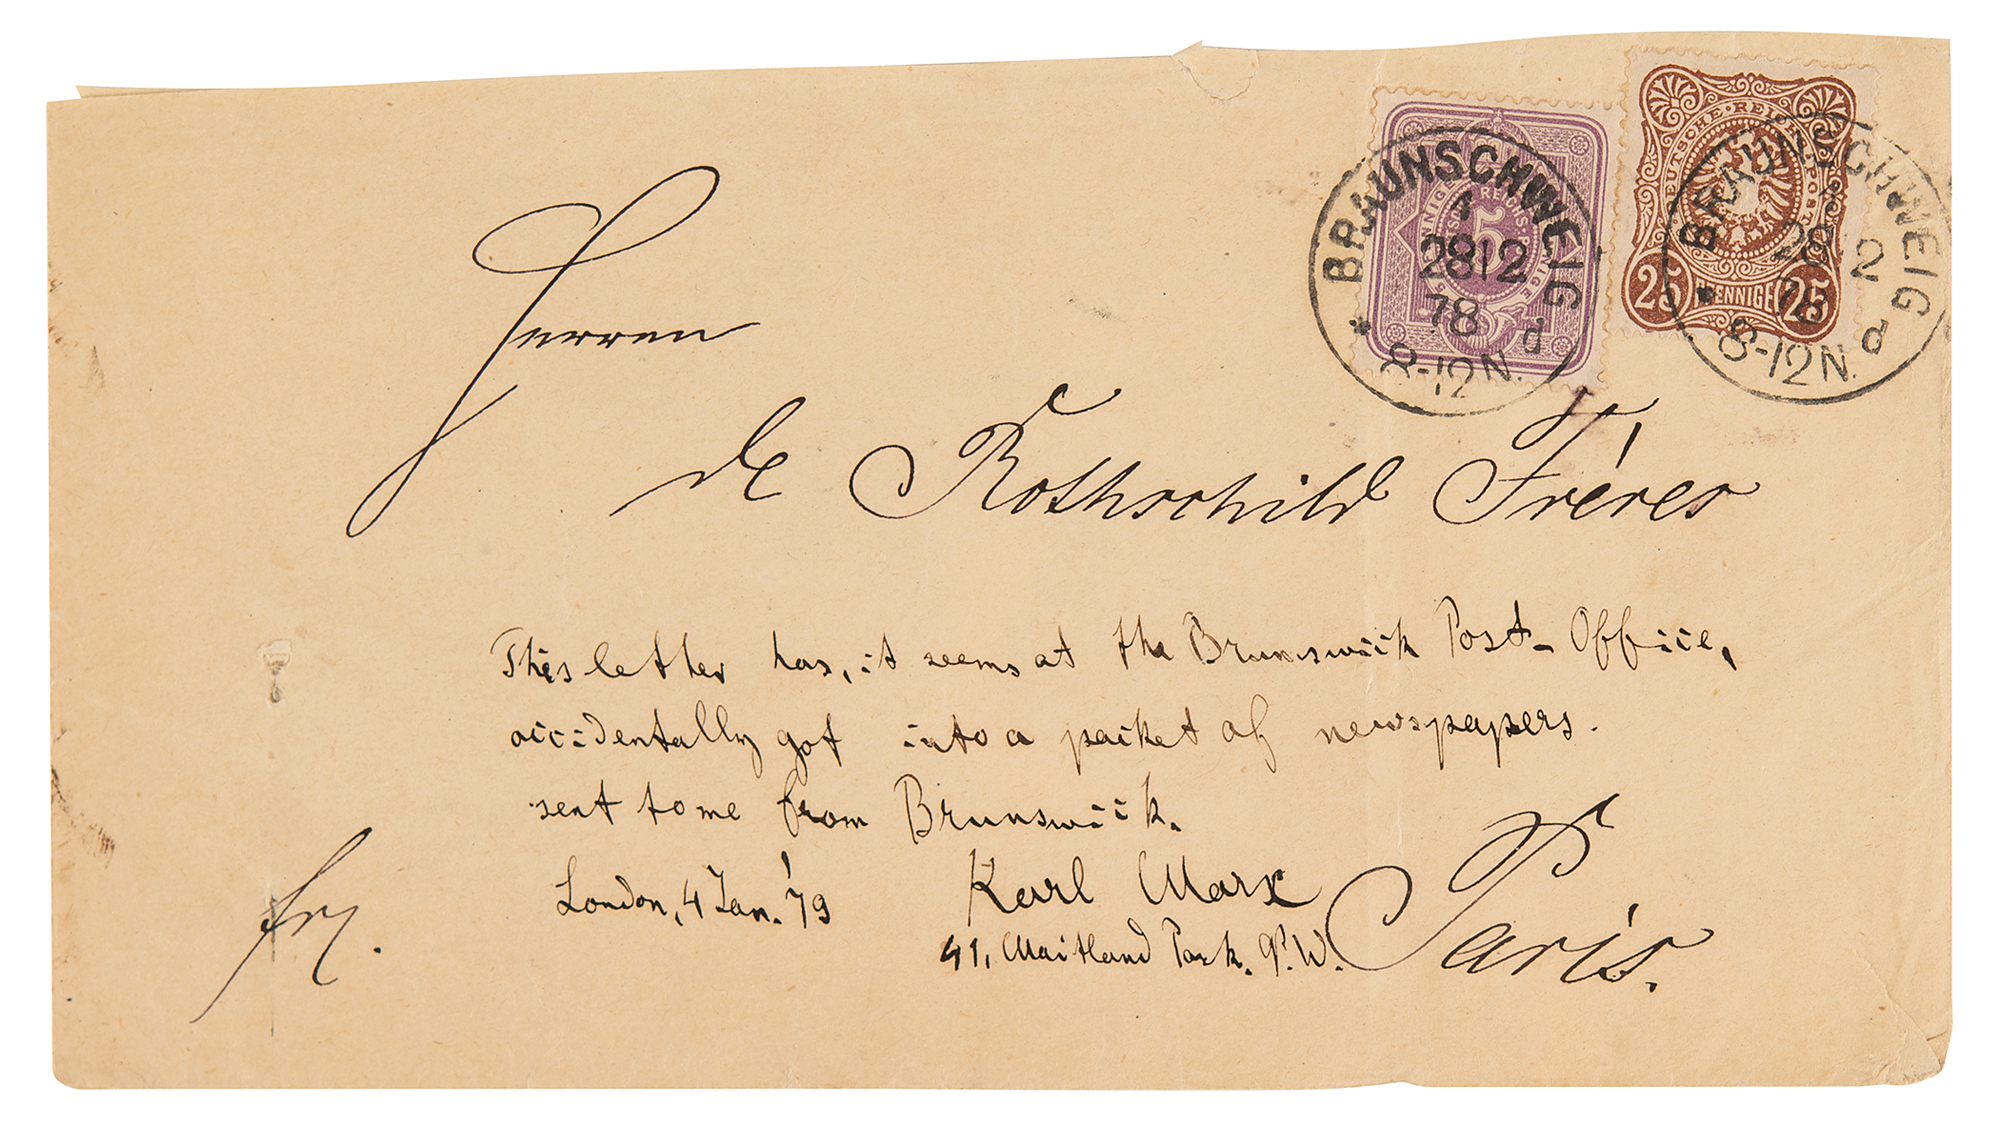 BRAUNSCHWEIG
1
28 12
78
* d
8-12N.
5
DEUTSCHE REICHS-POST
25 PFENNIGE 25
BRAUNSCHWEIG
28 2
78
* d
8-12N.
Herren
de Rothschild Fréres
This letter has, it seems at the Brunswick Post-Office,
accidentally got into a packet of newspapers.
sent to me from Brunswick.
London, 4 Jan. '79 Karl Marx
41, Maitland Park. N.W.
Paris.
frz.